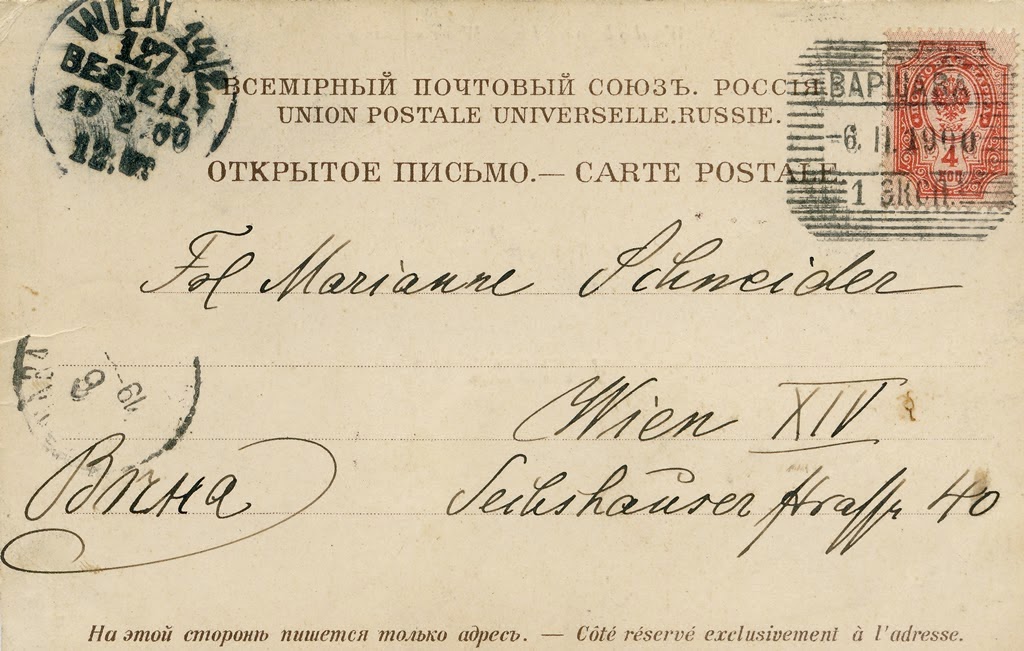 WIEN 14/2
127
BESTELLT
19 2 00
ВСЕМІРНЫЙ ПОЧТОВЫЙ СОЮЗЪ. РОССІЯ.
UNION POSTALE UNIVERSELLE. RUSSIE.
ОТКРЫТОЕ ПИСЬМО.— CARTE POSTALE.
ВАРШАВА
-6. II. 1900
1
4
КОП
Frl Marianne Schneider
Wien XIV
Вѣна
Sechshauser straße 40
На этой сторонѣ пишется только адресъ. — Côté réservé exclusivement à l'adresse.